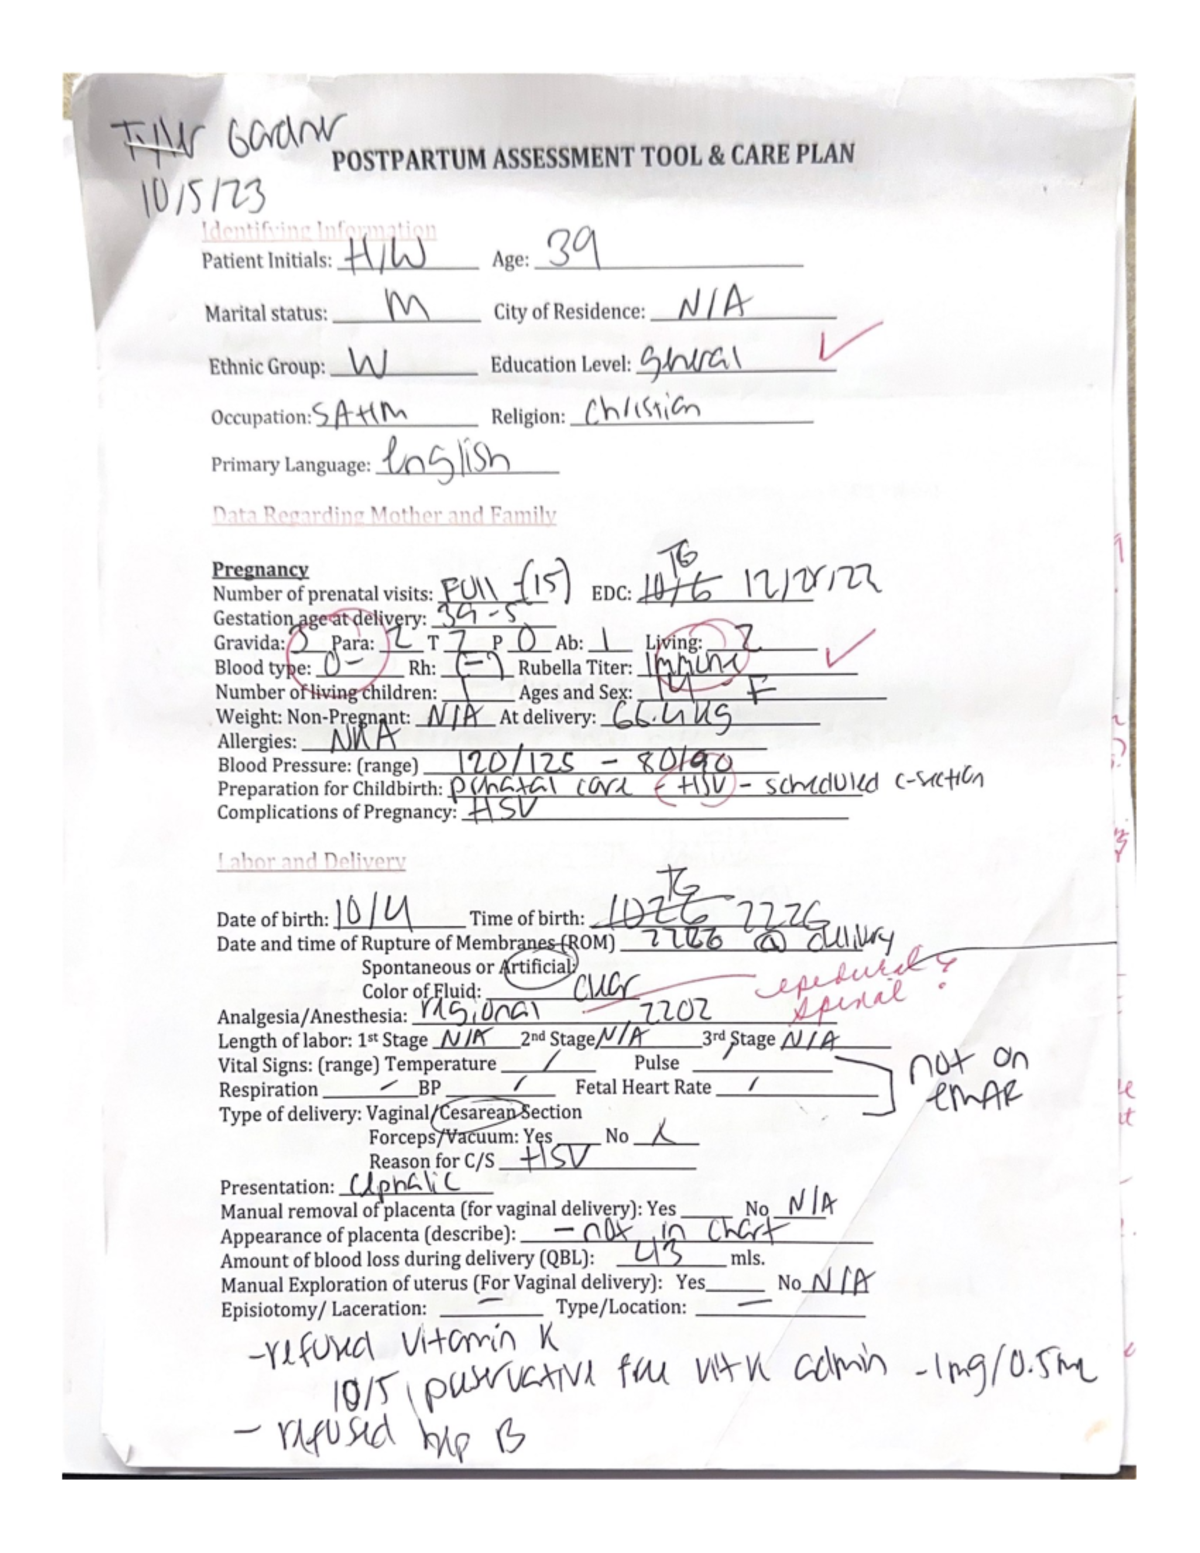 Tyler Gardner
POSTPARTUM ASSESSMENT TOOL & CARE PLAN
10/5/23
Identifying Information
Patient Initials: H/W Age: 39
Marital status: M City of Residence: N/A
Ethnic Group: W Education Level: General
Occupation: SAHM Religion: Christian
Primary Language: English
Data Regarding Mother and Family
TG
Pregnancy
Number of prenatal visits: Full (15) EDC: 10/6
Gestation age at delivery: 39-5
Gravida: 3 Para: 2 T 2 P 0 Ab: 1 Living: 2
Blood type: O- Rh: (-) Rubella Titer: Immune
Number of living children: Ages and Sex: F
Weight: Non-Pregnant: N/A At delivery: 66.4 kg
Allergies: NKA
Blood Pressure: (range) 120/125 - 80/90
Preparation for Childbirth: prenatal care - HSV - scheduled c-section
Complications of Pregnancy: HSV
Labor and Delivery
TG
Date of birth: 10/4 Time of birth: 1026 2226
Date and time of Rupture of Membranes (ROM) 2226 @ delivery
Spontaneous or Artificial: epidural &
Color of Fluid: clear spinal ?
Analgesia/Anesthesia: regional 2202
Length of labor: 1st Stage N/A 2nd Stage N/A 3rd Stage N/A
Vital Signs: (range) Temperature / Pulse / not on
Respiration / BP / Fetal Heart Rate / EMAR
Type of delivery: Vaginal/Cesarean Section
Forceps/Vacuum: Yes No X
Reason for C/S HSV
Presentation: Cephalic
Manual removal of placenta (for vaginal delivery): Yes No N/A
Appearance of placenta (describe): - not in chart
Amount of blood loss during delivery (QBL): 413 mls.
Manual Exploration of uterus (For Vaginal delivery): Yes No N/A
Episiotomy/ Laceration: — Type/Location: —
-refused Vitamin K
10/5 preservative free vit K admin -1mg/0.5mL
- refused hep B